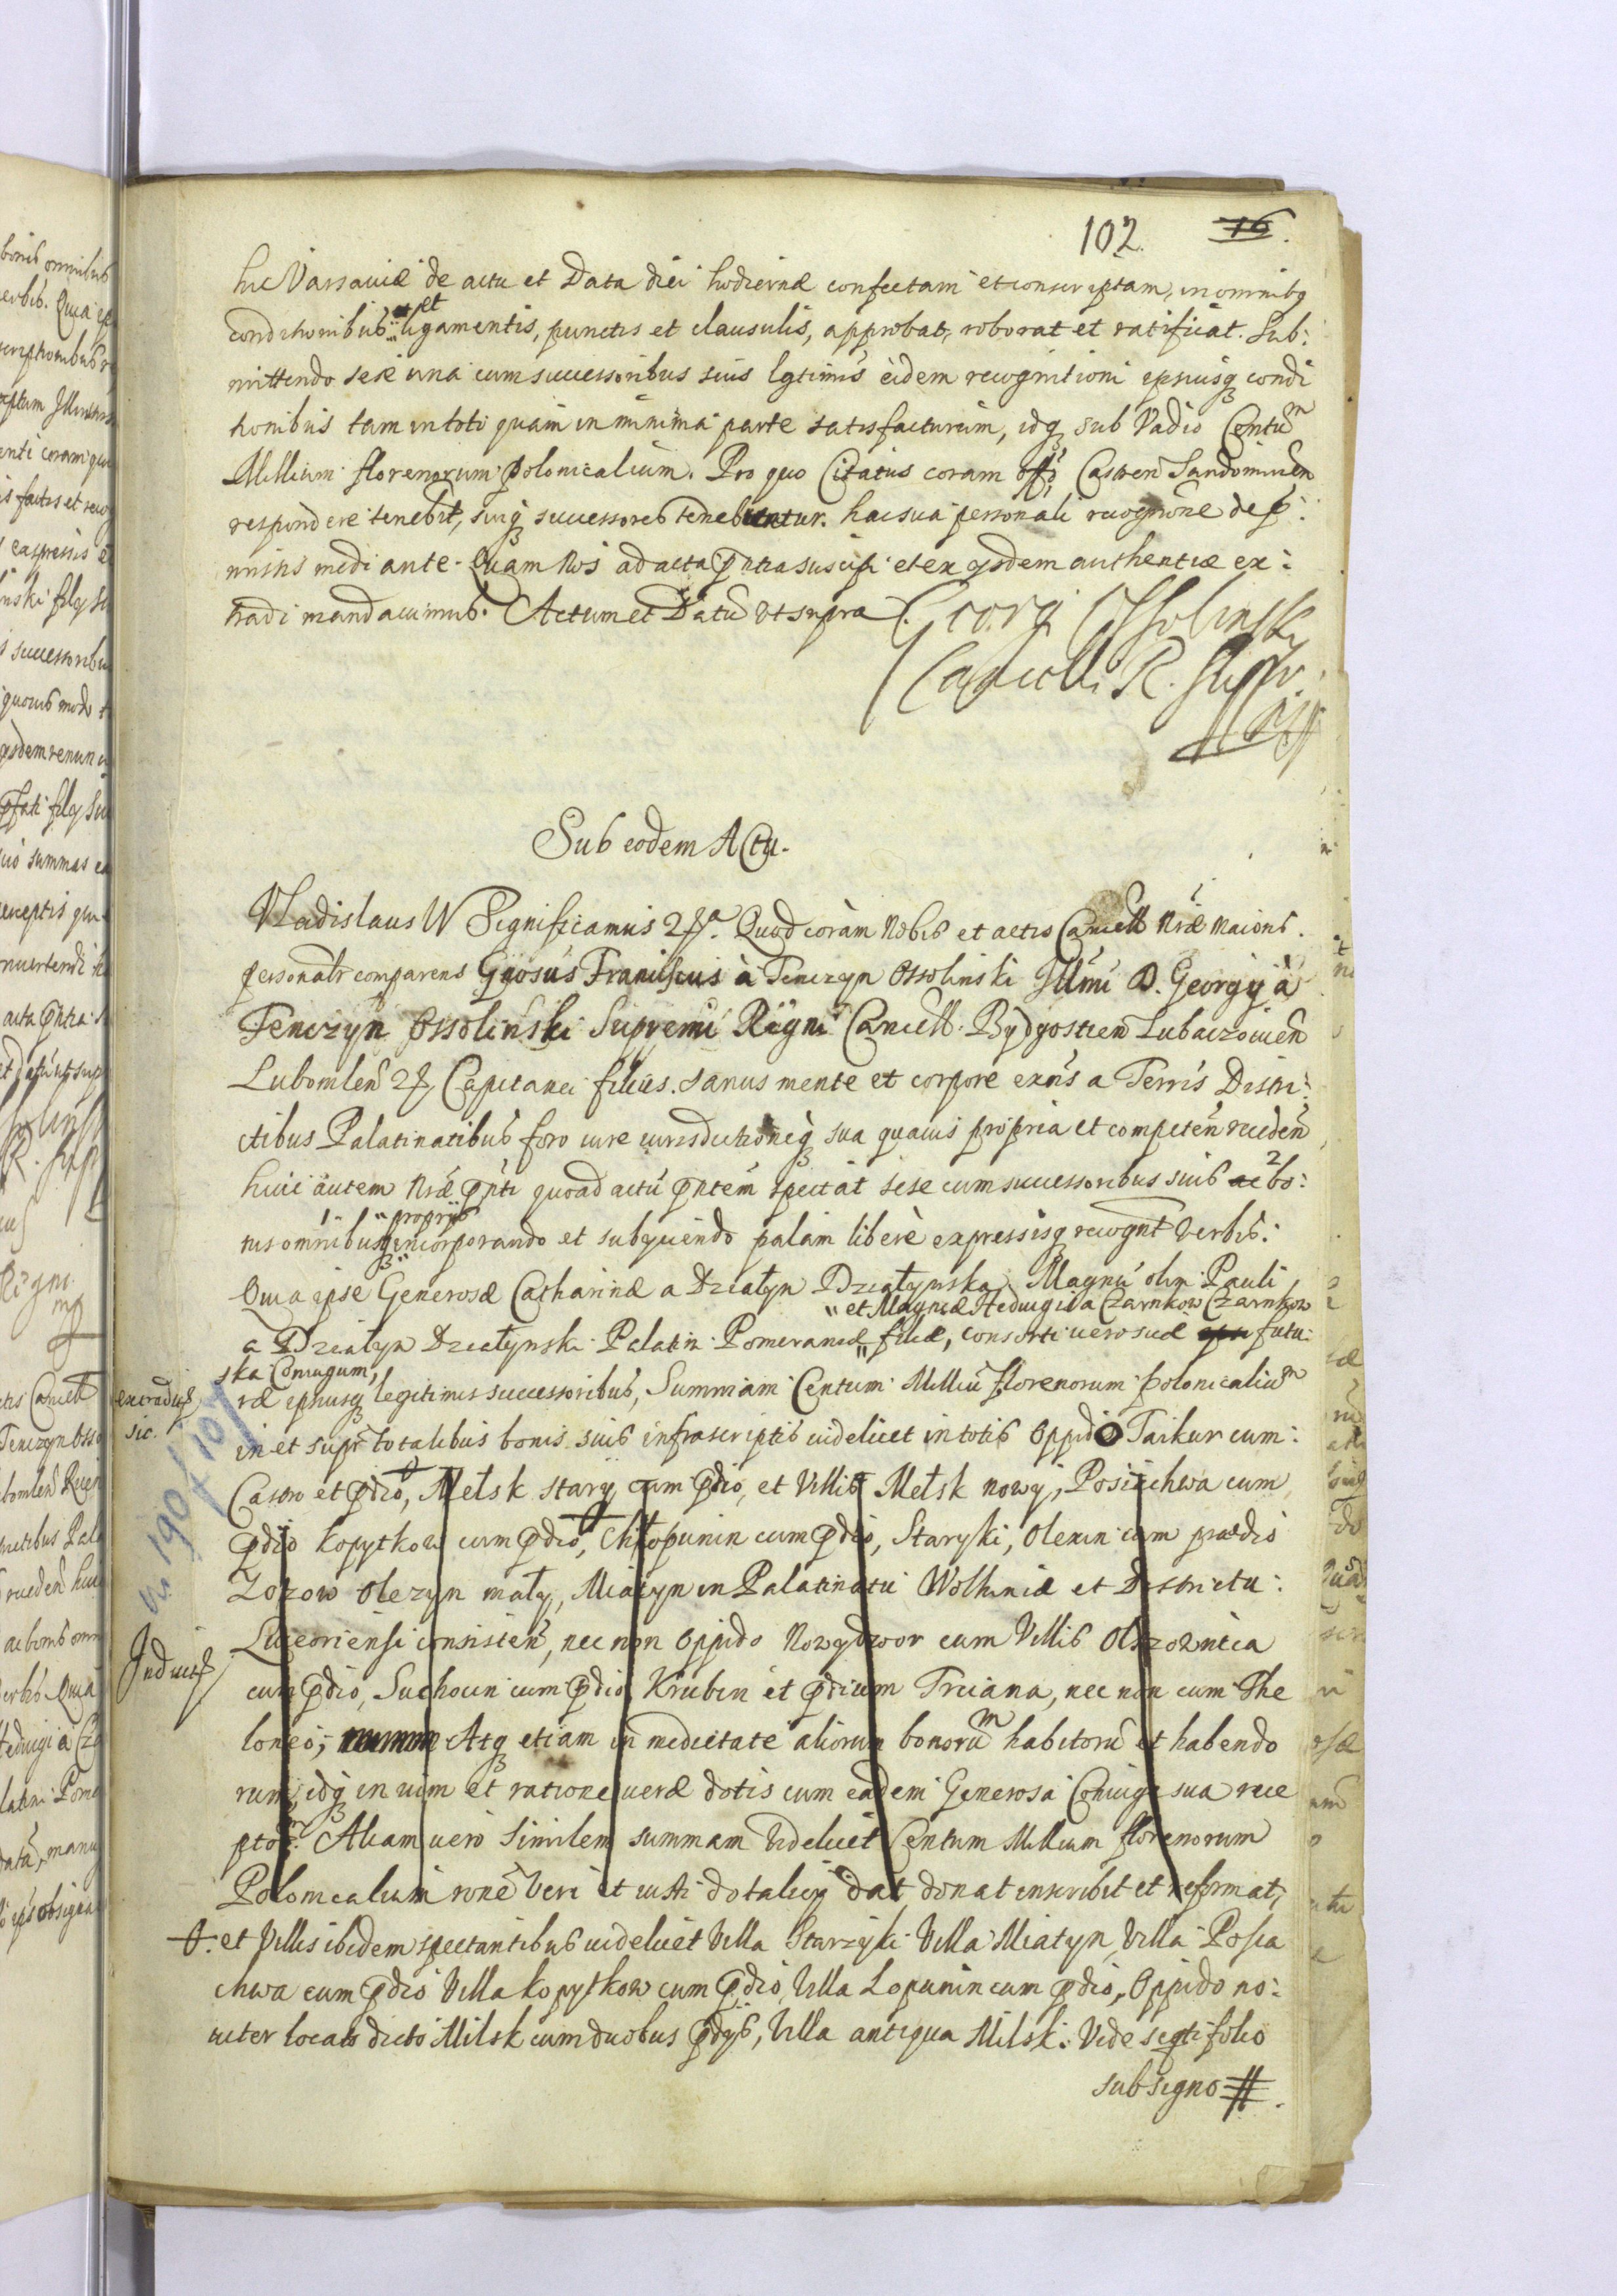 102. 16.
hic Varsaviæ de actu et Data diei hodiernæ confectam et conscriptam, in omnibq
conditionibus et ligamentis, punctis et clausulis, approbat, roborat et ratificat. Sub:
mittendo sese una cum successoribus suis lgtimis eidem recognitioni ejusqꝫ condi
tionibus tam in toti quam in minima parte satisfacturum, idqꝫ sub Vadio Centum
Millium florenorum polonicalium. Pro quo Citatus coram offo Castren Sandomirien
respondere tenebit, suiqꝫ successores tenebuntur. hac sua personali recognone de p:
missis mediante. Quam Nos ad acta pntia suscipi et ex ysdem authentice ex:
tradi mandavimus. Actum et Datu ut supra
Georg Ossolinsky
Cancell. R. Supr
mpp
Sub eodem Actu.
Vladislaus IV Significamus 2ꝭa. Quod coram Nobis et actis Cancell Nræ Maioris.
personalr comparens Gnosus Franciscus à Tenczyn Ossolinski Illmi D. Georgij à
Tenczyn Ossolinski Supremi Regni Cancell. Bydgostien Lubaczovien
Lubomlen 2ꝭ Capitanei filius. sanus mente et corpore exns a Terris Distri:
ctibus Palatinatibus foro iure iurisdictioneqꝫ sua quavis propria et competen receden
huic autem Nræ pnti quoad actu pntem spectat sese cum successoribus suis ac 2 bo:
nis omnibusqꝫ 1 proprijs incorporando et subyciendo palam liberè expressisqꝫ recognt Verbis:
Quia ipse Generosæ Catharinæ a Dzialyn Dzialynska Magnci olim Pauli
a Dzialyn Dzialynski Palatin Pomeraniæ et Magncæ Hedvigis a Czarnkow Czarnkow
ska Coniugum, filiæ, consorti vero suæ futu:
ræ ejusqꝫ legitimis successoribus, Summam Centum Milliu florenorum polonicalium
extradit
sic.
in et supr totalibus bonis suis infrascriptis videlicet in totis Oppido Taikur cum
Castro et pdio, Melsk stary cum pdio, et Villis Melsk nowy, Posiachwa cum
pdio Kopytkow cum pdio, Chlopunin cum pdio, Staryki, Olexin cum prædio
Zozow Olexyn maly, Miatyn in Palatinatu Wolhiniæ et Districtu
vi. 190 / f 107
Inducit
Luceoriensi consisten, nec non Oppido Nowydwor cum Villis Olszownica
cum pdio, Suchocin cum pdio, Krubin et pdium Trciana, nec non cum The
loneo, Atqꝫ etiam in medietate aliorum bonorum habitoru et habendo
rum, idqꝫ in vim et ratione veræ dotis cum eadem Generosa Coniuge sua rece
ptor. Aliam vero similem summam Videlicet Centum Millium florenorum
Polonicalium rone Veri et iusti dotalicij dat donat inscribit et reformat,
et Villis ibidem spectantibus videlicet Villa Starzyki Villa Miatyn Villa Posia
chwa cum pdio Villa Kopytkow cum pdio, Villa Lopunin cum pdio, Oppido no:
viter locato dicto Milsk cum duobus pdijs, Villa antiqua Milsk. Vide seqti folio
sub signo #.